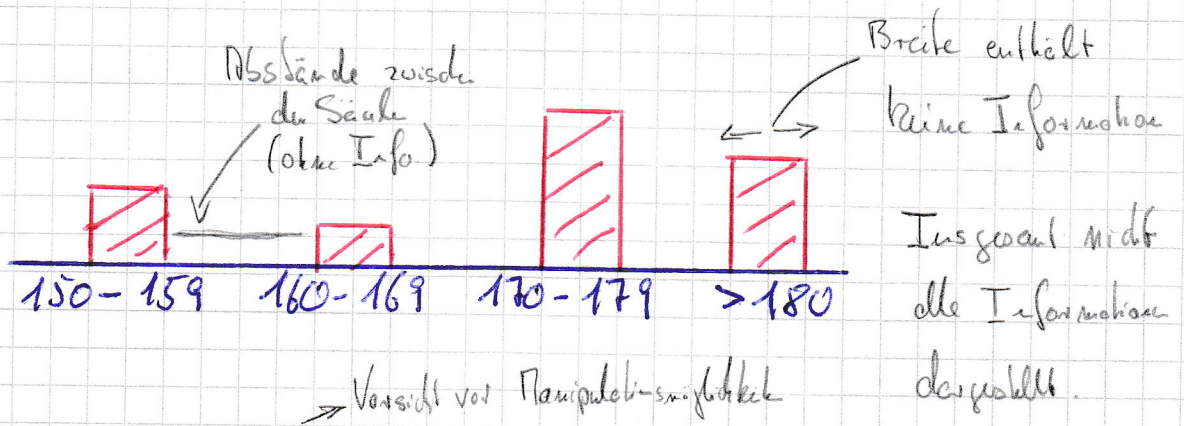 Abstände zwischen
den Säulen
(ohne Info)
Breite enthält
keine Information
Insgesamt nicht
alle Informationen
dargestellt.
150-159 160-169 170-179 >180
Vorsicht vor Manipulationsmöglichkeit